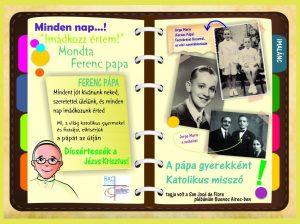 Minden nap...!
"Imádkozz értem!"
Mondta
Ferenc papa
FERENC PÁPA
Mindent jót kívánunk neked,
szeretettel ölelünk, és minden
nap imádkozunk érted
Mi, a világ katolikus gyermekei
és fiataljai, elkísérjük
a pápát az útján
Dicsértessék a
Jézus Krisztus!
Jorge Mario
IMALÁNC
Jorge Mario
A pápa gyerekként
Katolikus misszó
tagja volt a San José de Flore
plébánián Buenos Aires-ban
!